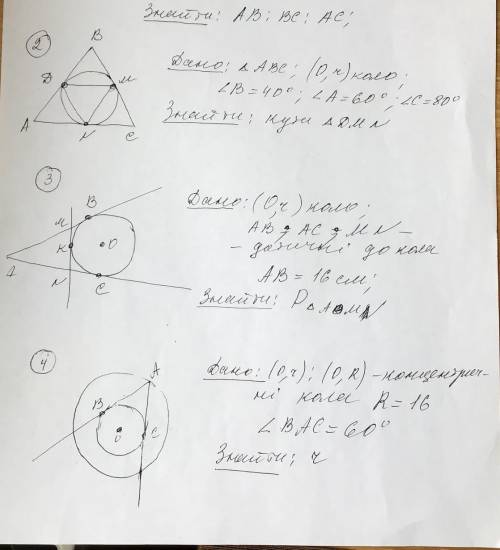 Знайти: AB; BC; AC;
2
B
Дано: △ABC; (O,r) коло;
∠B=40°; ∠A=60°; ∠C=80°
Знайти: кути △DMN
D
M
A
N
C
3
Дано: (O,r) коло;
AB; AC; MN –
– дотичні до кола
AB = 16 см;
Знайти: P△AMN
B
M
K
O
A
N
C
4
Дано: (O,r); (O,R) – концентрич-
ні кола R=16
∠BAC=60°
Знайти; r
A
B
O
C